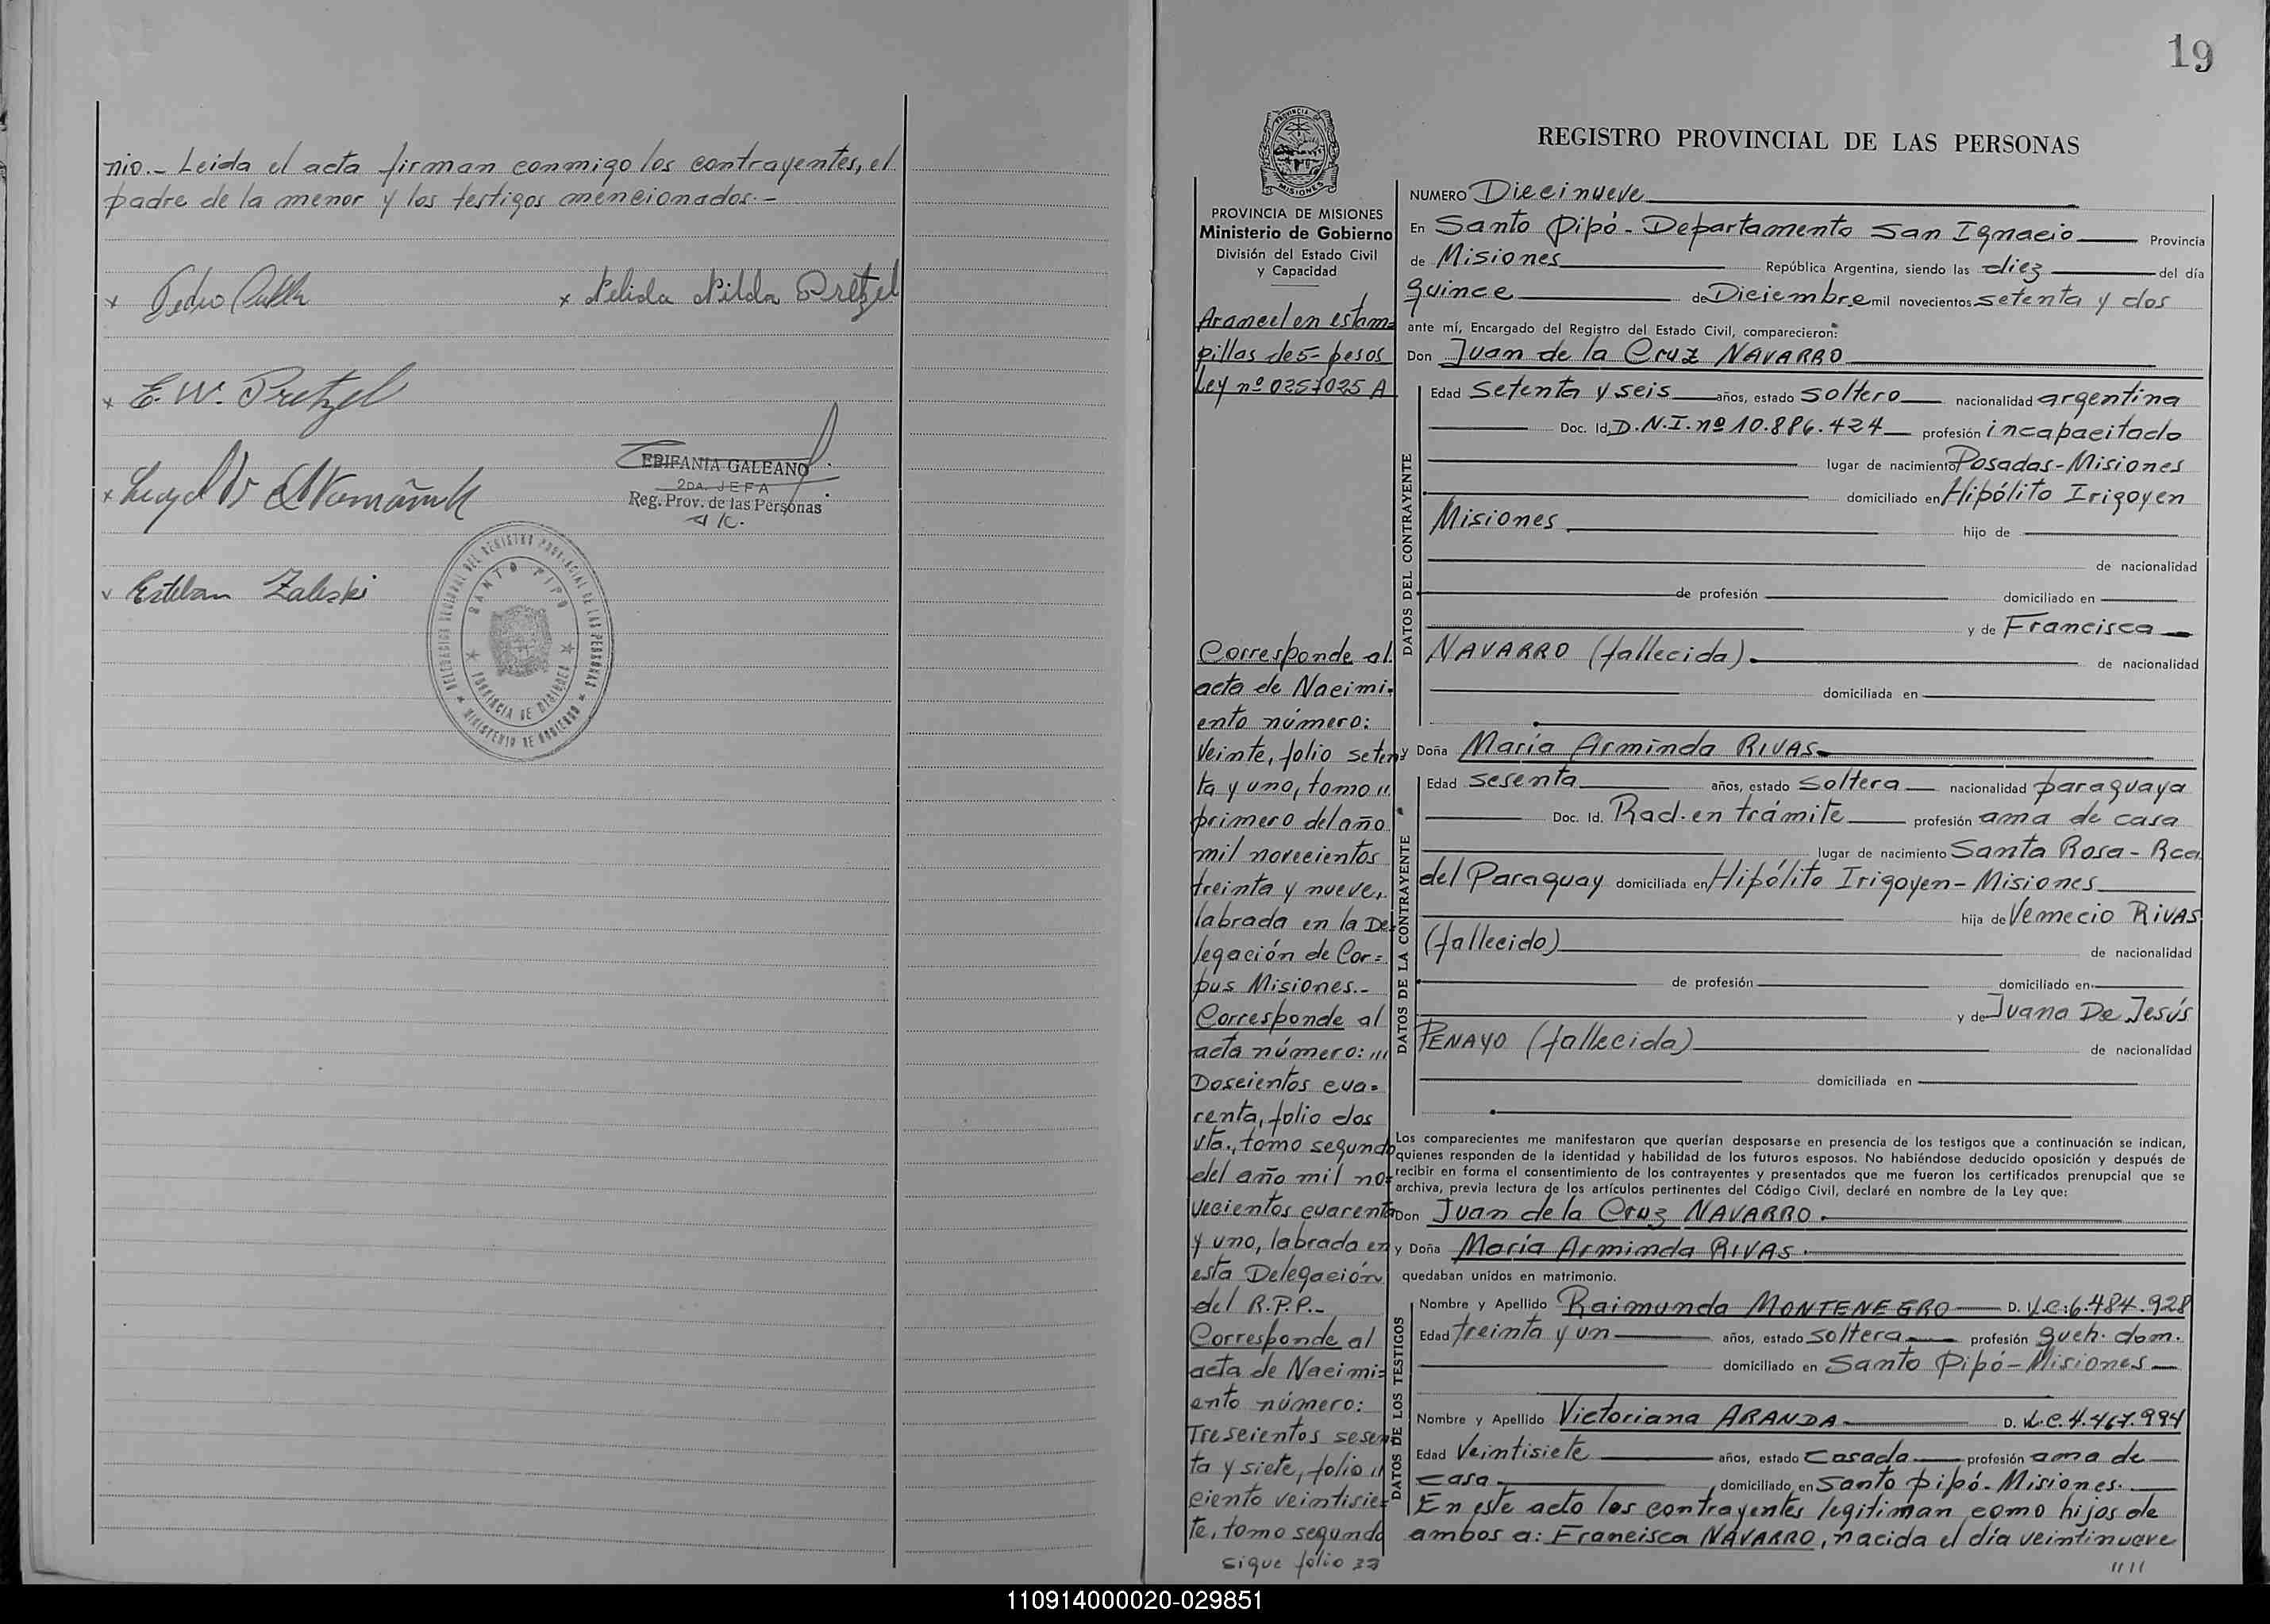 nio.- Leida el acta firman conmigo los contrayentes, el
padre de la menor y los testigos mencionados.-
x Pedro
x Nelida Nilda Pretzel
x E. W. Pretzel
EPIFANIA GALEANO
2DA. JEFA
Reg. Prov. de las Personas
A/C.
x
v Esteban Zaleski
DELEGACION SECCIONAL DEL REGISTRO PROVINCIAL DE LAS PERSONAS
MINISTERIO DE GOBIERNO
SANTO PIPO
PROVINCIA DE MISIONES
19
PROVINCIA DE
MISIONES
REGISTRO PROVINCIAL DE LAS PERSONAS
PROVINCIA DE MISIONES
Ministerio de Gobierno
División del Estado Civil
y Capacidad
Arancel en estam=
pillas de 5- pesos
Ley nº 0257025 A
Corresponde al
acta de Nacimi=
ento número:
Veinte, folio seten=
ta y uno, tomo "
primero del año
mil novecientos
treinta y nueve,
labrada en la De=
legación de Cor=
pus Misiones.-
Corresponde al
acta número: "'
Doscientos cua=
renta, folio dos
vta., tomo segundo
del año mil no=
vecientos cuarenta
y uno, labrada en
esta Delegación
del R.P.P.-
Corresponde al
acta de Nacimi=
ento número:
Trescientos sesen=
ta y siete, folio "
ciento veintisie=
te, tomo segundo
sigue folio
NUMERO Diecinueve
En Santo Pipó - Departamento San Ignacio Provincia
de Misiones República Argentina, siendo las diez del día
quince de Diciembre mil novecientos setenta y dos
ante mí, Encargado del Registro del Estado Civil, comparecieron:
Don Juan de la Cruz NAVARRO
DATOS DEL CONTRAYENTE
Edad setenta y seis años, estado soltero nacionalidad argentina
Doc. Id. D.N.I. nº 10.886.424 profesión incapacitado
lugar de nacimiento Posadas - Misiones
domiciliado en Hipólito Irigoyen
Misiones hijo de
de nacionalidad
de profesión domiciliado en
y de Francisca
NAVARRO (fallecida). de nacionalidad
domiciliada en
y Doña María Arminda RIVAS
DATOS DE LA CONTRAYENTE
Edad sesenta años, estado soltera nacionalidad paraguaya
Doc. Id. Rad. en trámite profesión ama de casa
lugar de nacimiento Santa Rosa - Rca
del Paraguay domiciliada en Hipólito Irigoyen - Misiones
hija de Vemecio RIVAS
(fallecido) de nacionalidad
de profesión domiciliado en
y de Juana De Jesús
PENAYO (fallecida) de nacionalidad
domiciliada en
Los comparecientes me manifestaron que querían desposarse en presencia de los testigos que a continuación se indican,
quienes responden de la identidad y habilidad de los futuros esposos. No habiéndose deducido oposición y después de
recibir en forma el consentimiento de los contrayentes y presentados que me fueron los certificados prenupcial que se
archiva, previa lectura de los artículos pertinentes del Código Civil, declaré en nombre de la Ley que:
Don Juan de la Cruz NAVARRO.
y Doña María Arminda RIVAS.
quedaban unidos en matrimonio.
DATOS DE LOS TESTIGOS
Nombre y Apellido Raimunda MONTENEGRO D. L.C. 6.484.928
Edad treinta y un años, estado soltera profesión queh. dom.
domiciliado en Santo Pipó - Misiones
Nombre y Apellido Victoriana ARANDA D. L.C. 4.467.994
Edad Veintisiete años, estado casada profesión ama de
casa domiciliado en Santo Pipó - Misiones.
En este acto los contrayentes legitiman como hijos de
ambos a: Francisca NAVARRO, nacida el día veintinueve
""
110914000020-029851